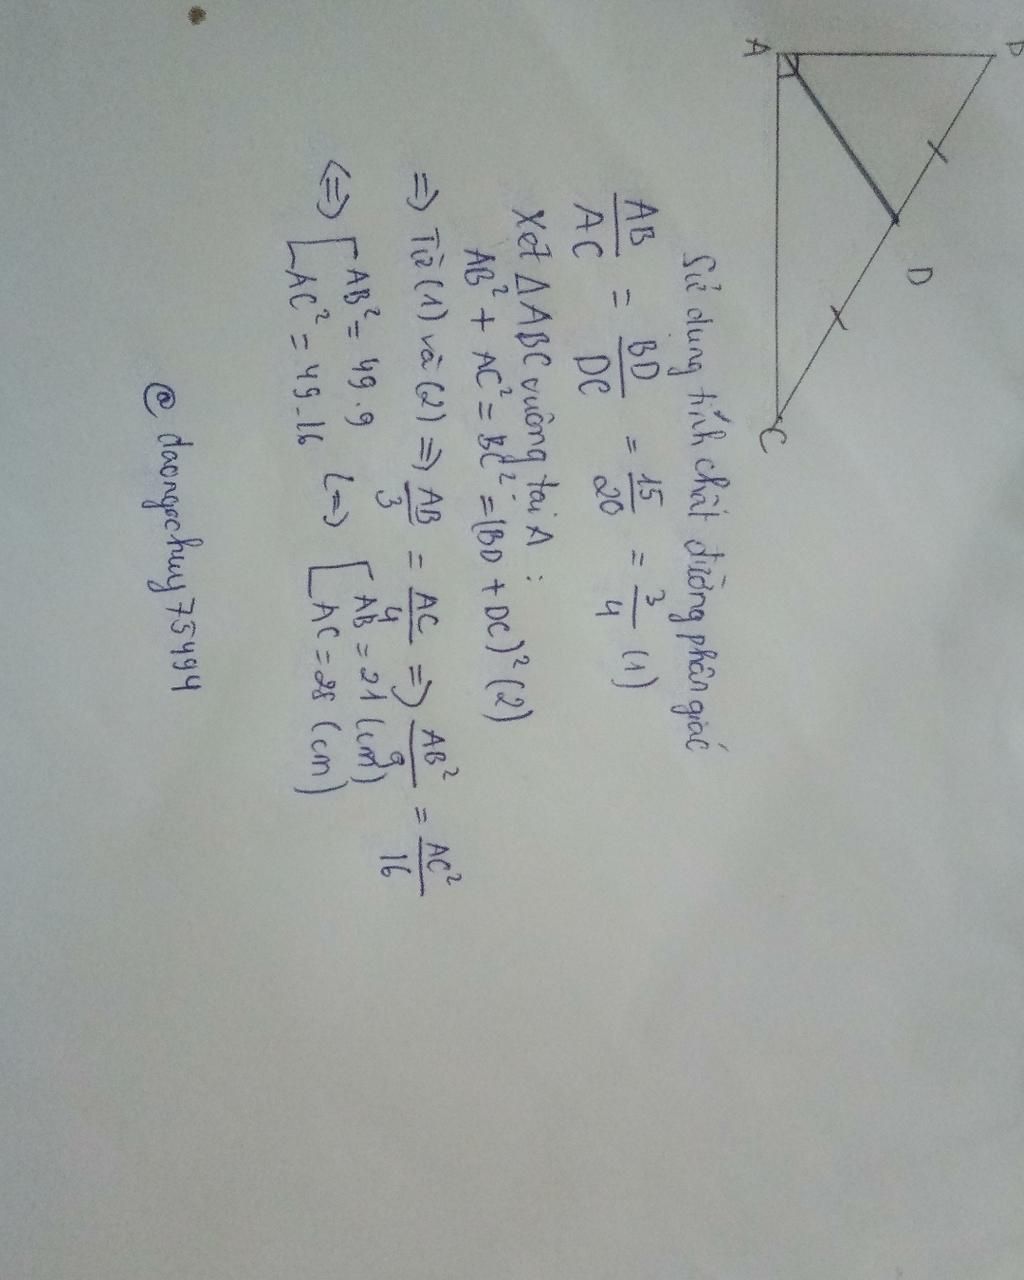 A
B
D
C
Sử dụng tính chất đường phân giác
AB/AC = BD/DC = 15/20 = 3/4 (1)
Xét ΔABC vuông tại A :
AB² + AC² = BC² = (BD + DC)² (2)
=> Từ (1) và (2) => AB/3 = AC/4 => AB²/9 = AC²/16
<=> [ AB² = 49.9 <=> [ AB = 21 (cm)
AC² = 49.16 AC = 28 (cm)
@daongochuy75494